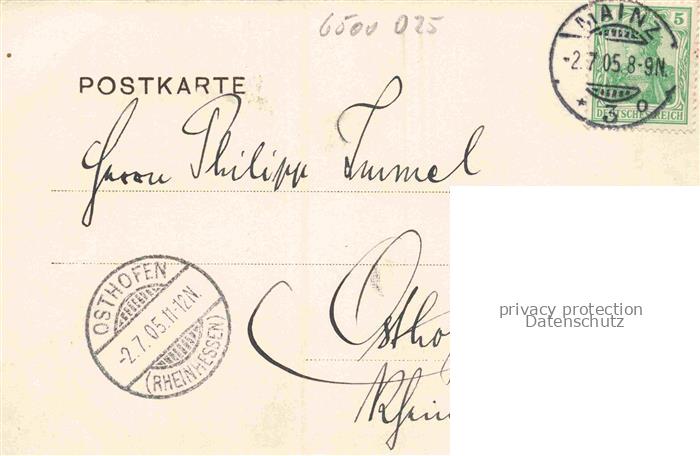 6500 025
MAINZ
-2.7.05.8-9N.
* 3 o
5
DEUTSCHES REICH
POSTKARTE
Herrn Philipp Immel
Ostho
Rhein
OSTHOFEN
-2.7.05.11-12N.
(RHEINHESSEN)
privacy protection
Datenschutz